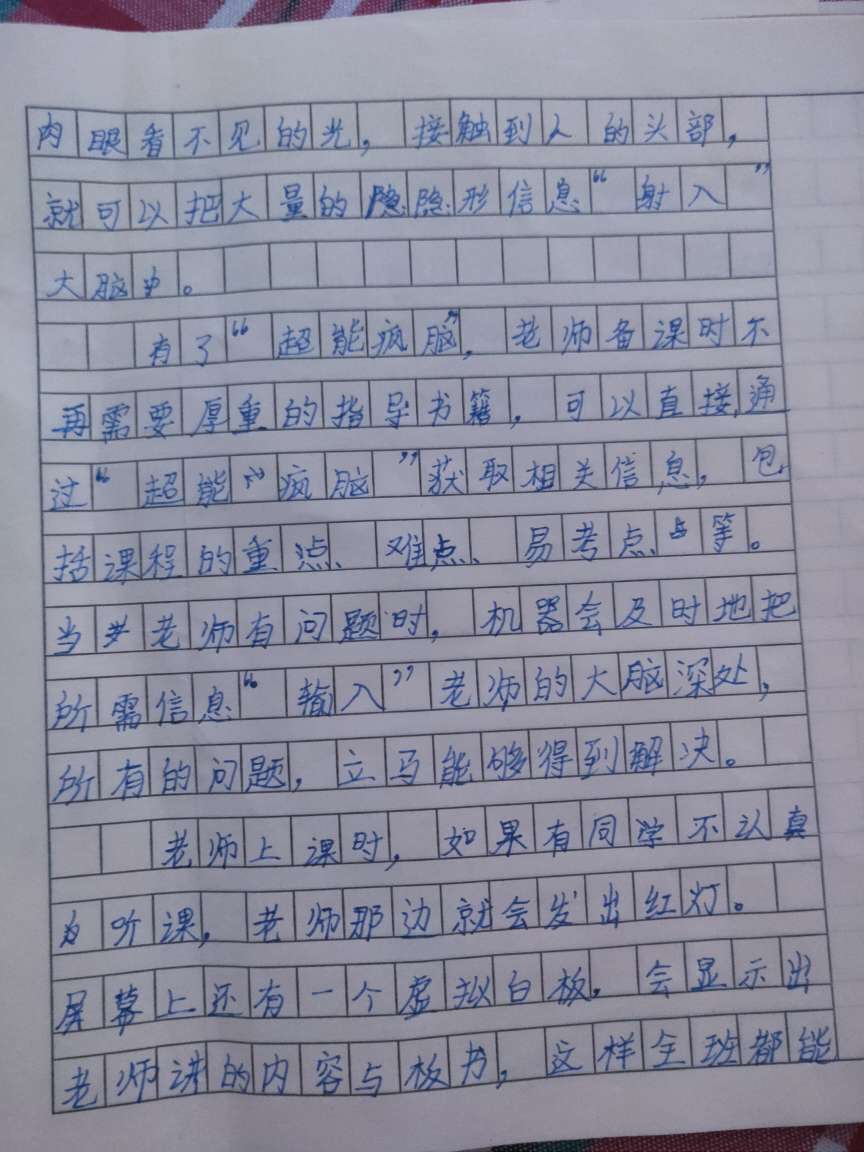 肉眼看不见的光，接触到人的头部，
就可以把大量的隐隐形信息“射入”
大脑中。
有了“超能疯脑”，老师备课时不
再需要厚重的指导书籍，可以直接通
过“超能疯脑”获取相关信息，包
括课程的重点、难点、易考点等。
当老师有问题时，机器会及时地把
所需信息“输入”老师的大脑深处，
所有的问题，立马能够得到解决。
老师上课时，如果有同学不认真
听课，老师那边就会发出红灯。
屏幕上还有一个虚拟白板，会显示出
老师讲的内容与板书，这样全班都能